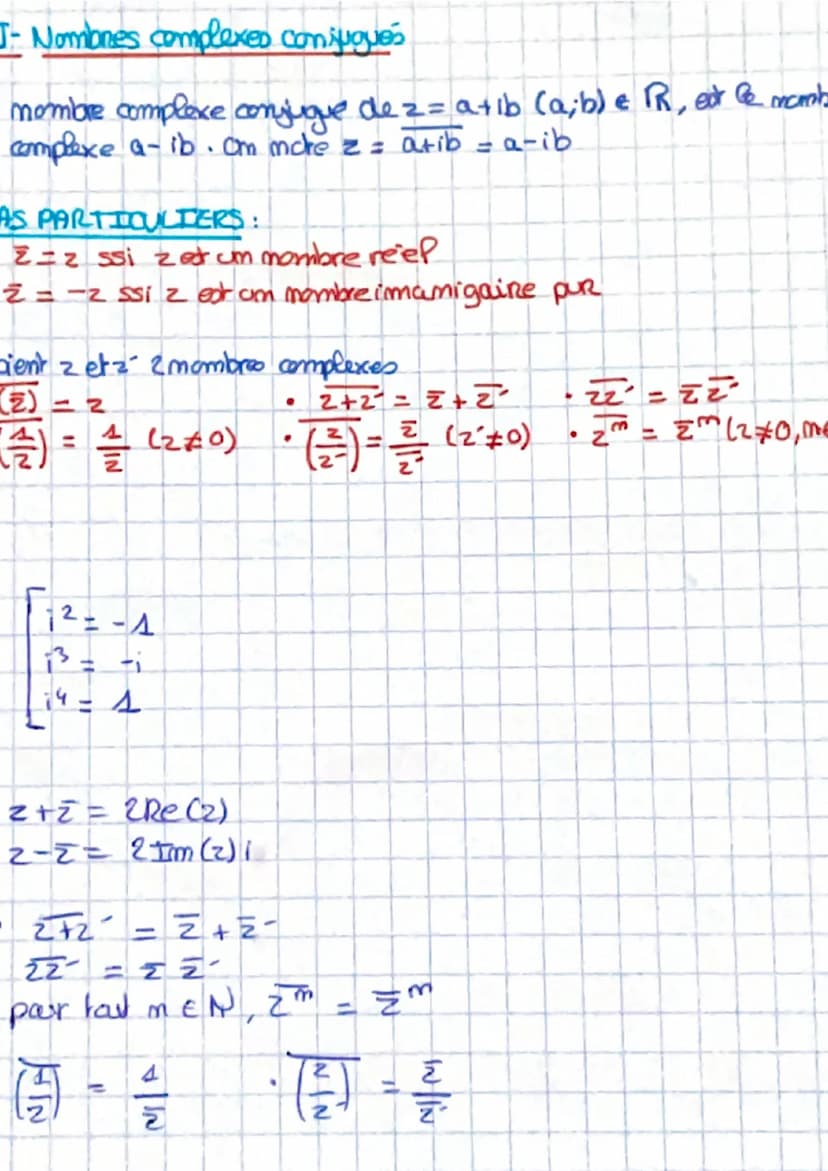 I- Nombres complexes conjugués
nombre complexe conjugue de z = a+ib (a;b) ∈ ℝ, est le nomb
complexe a-ib. On note z = \overline{a+ib} = a-ib
AS PARTICULIERS :
z̅ = z ssi z est un nombre réel
z̅ = -z ssi z est un nombre immamigaine pur
oient z et z' 2 nombres complexes
\overline{(z̅)} = z • \overline{z+z'} = z̅ + \overline{z'} • \overline{zz'} = z̅ \overline{z'}
\overline{(1/z)} = 1/z̅ (z≠0) • \overline{(z/z')} = z̅/\overline{z'} (z'≠0) • \overline{z^n} = z̅^n (z≠0, n∈
i² = -1
i³ = -i
i⁴ = 1
z + z̅ = 2Re(z)
z - z̅ = 2Im(z)i
\overline{z+z'} = z̅ + \overline{z'}
\overline{zz'} = z̅ \overline{z'}
pour tout n ∈ N, \overline{z^n} = z̅^n
\overline{(1/z)} = 1/z̅ • \overline{(z/z')} = z̅/\overline{z'}